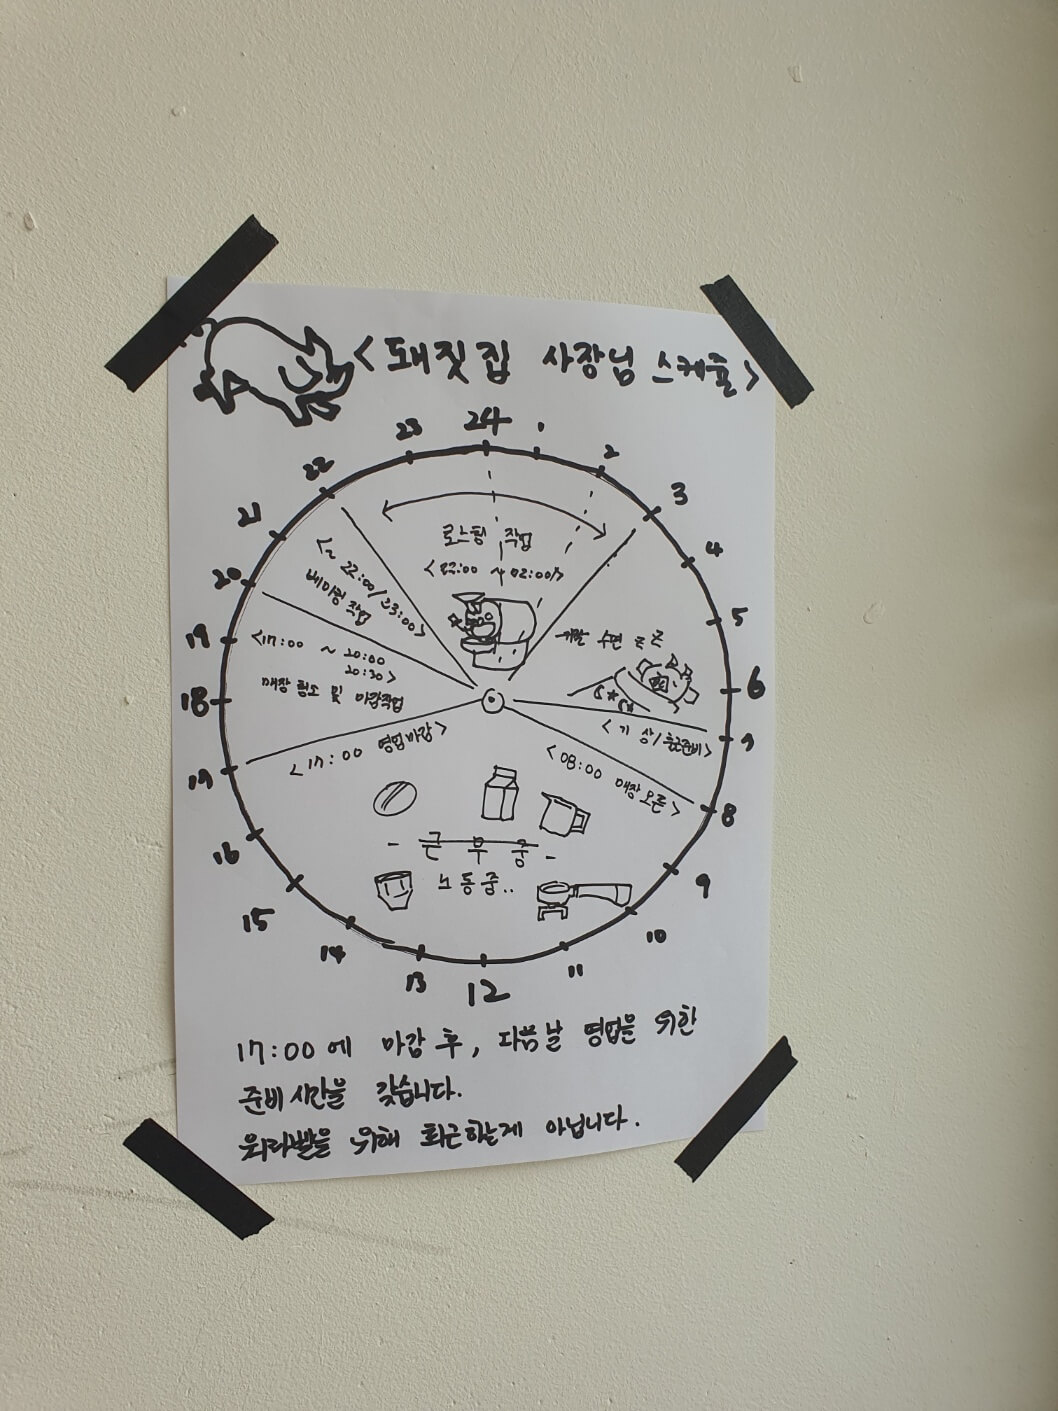 <돼짓집 사장님 스케쥴>
24
1
2
3
4
5
6
7
8
9
10
11
12
13
14
15
16
17
18
19
20
21
22
23
로스팅 작업
<22:00 ~ 02:00>
<~ 22:00/23:00>
베이킹 작업
<17:00 ~ 20:00
20:30>
매장 청소 및 마감작업
<17:00 영업마감>
수면 zz
<기상/출근준비>
<08:00 매장오픈>
- 근무중 -
노동중..
17:00에 마감 후, 다음날 영업을 위한
준비시간을 갖습니다.
워라밸을 위해 퇴근하는게 아닙니다.